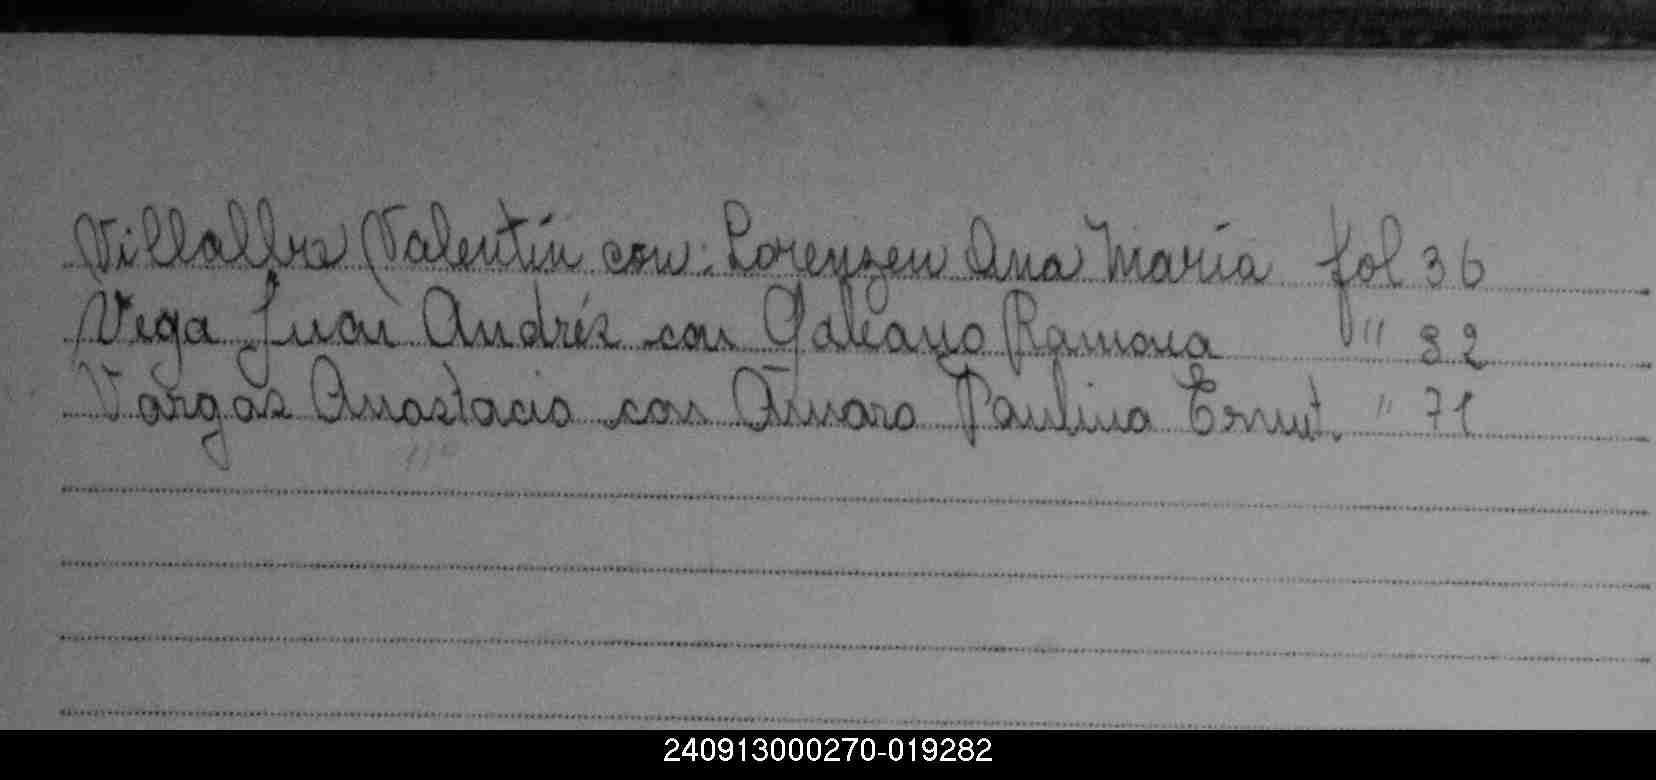 Villalba Valentín con: Lorenzen Ana María fol 36
Vega Juan Andrés con Galeano Ramona " 32
Vargas Anastacio con Amaro Paulina Ernest. " 71
240913000270-019282